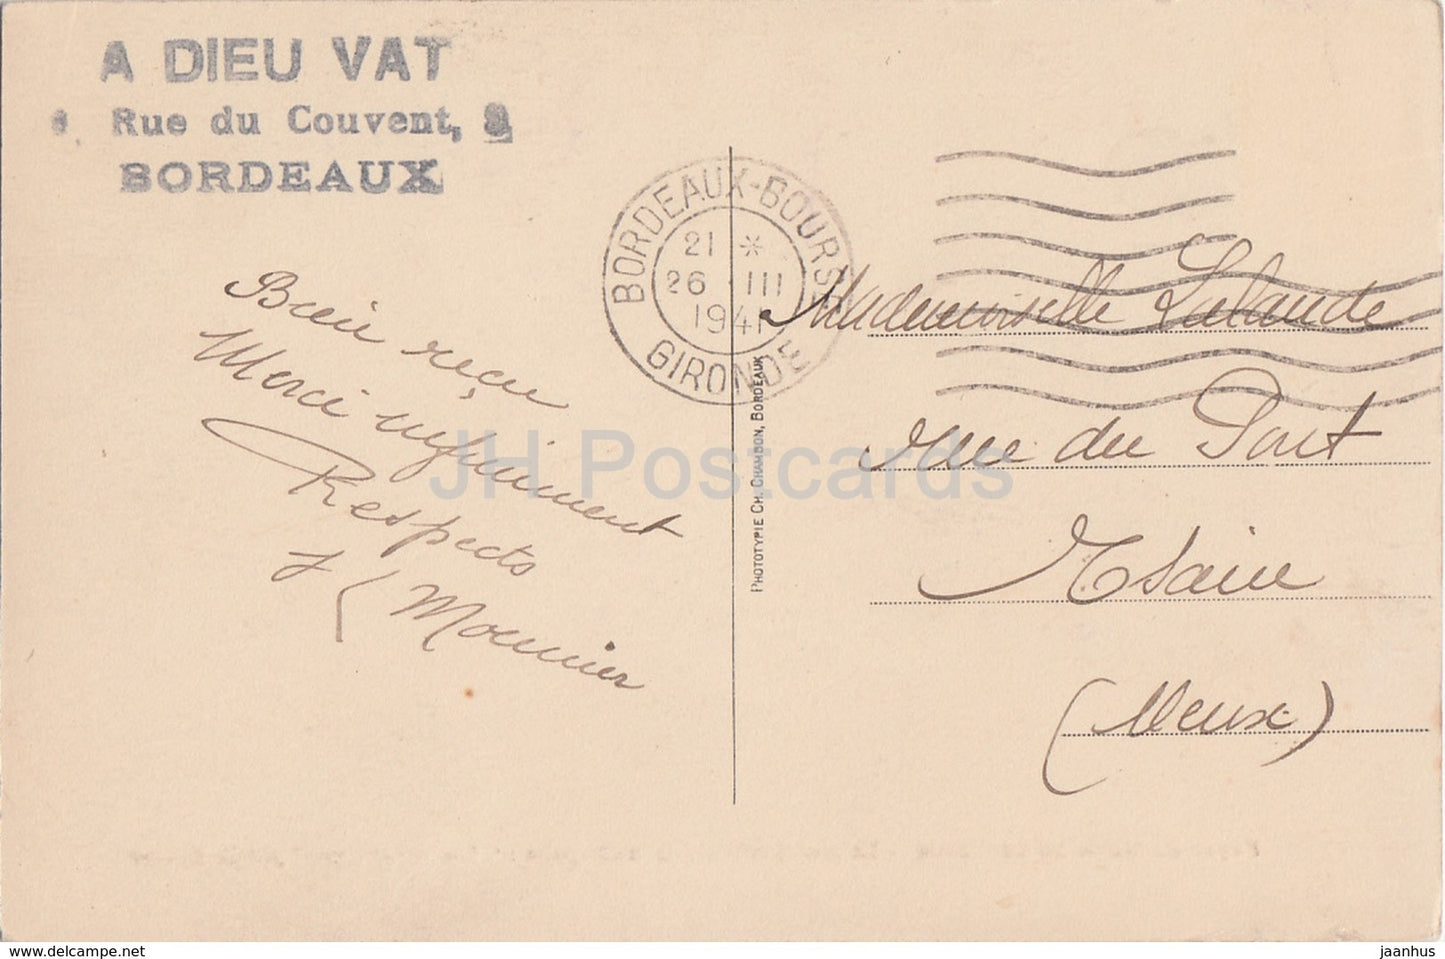 A DIEU VAT
Rue du Couvent,
BORDEAUX
BORDEAUX-BOURSE
21 *
26 III
1941
GIRONDE
Bien reçu
Merci infiniment
Respects
J Mounier
Mademoiselle Lalande
rue du Pont
(Meuse)
PHOTOTYPIE CH. CHAMBON, BORDEAUX
JH Postcards
www.delcampe.net
jaanhus